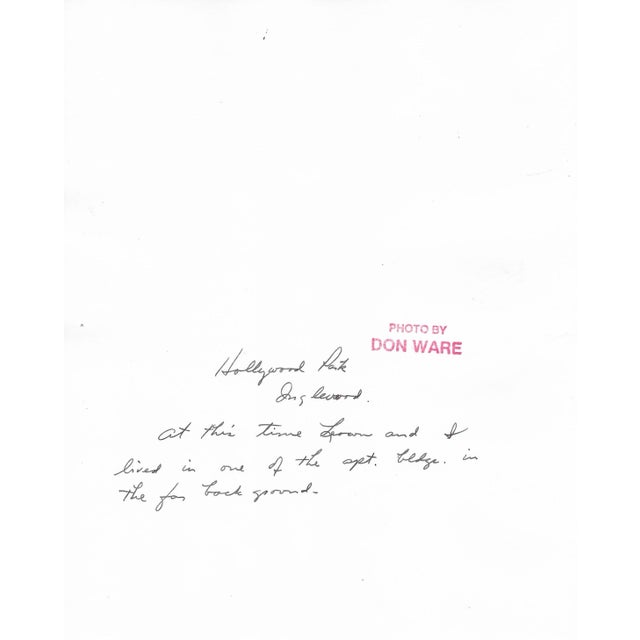 PHOTO BY
DON WARE
Hollywood Park
Inglewood.
At this time and I
lived in one of the apt. bldgs. in
the far back ground.